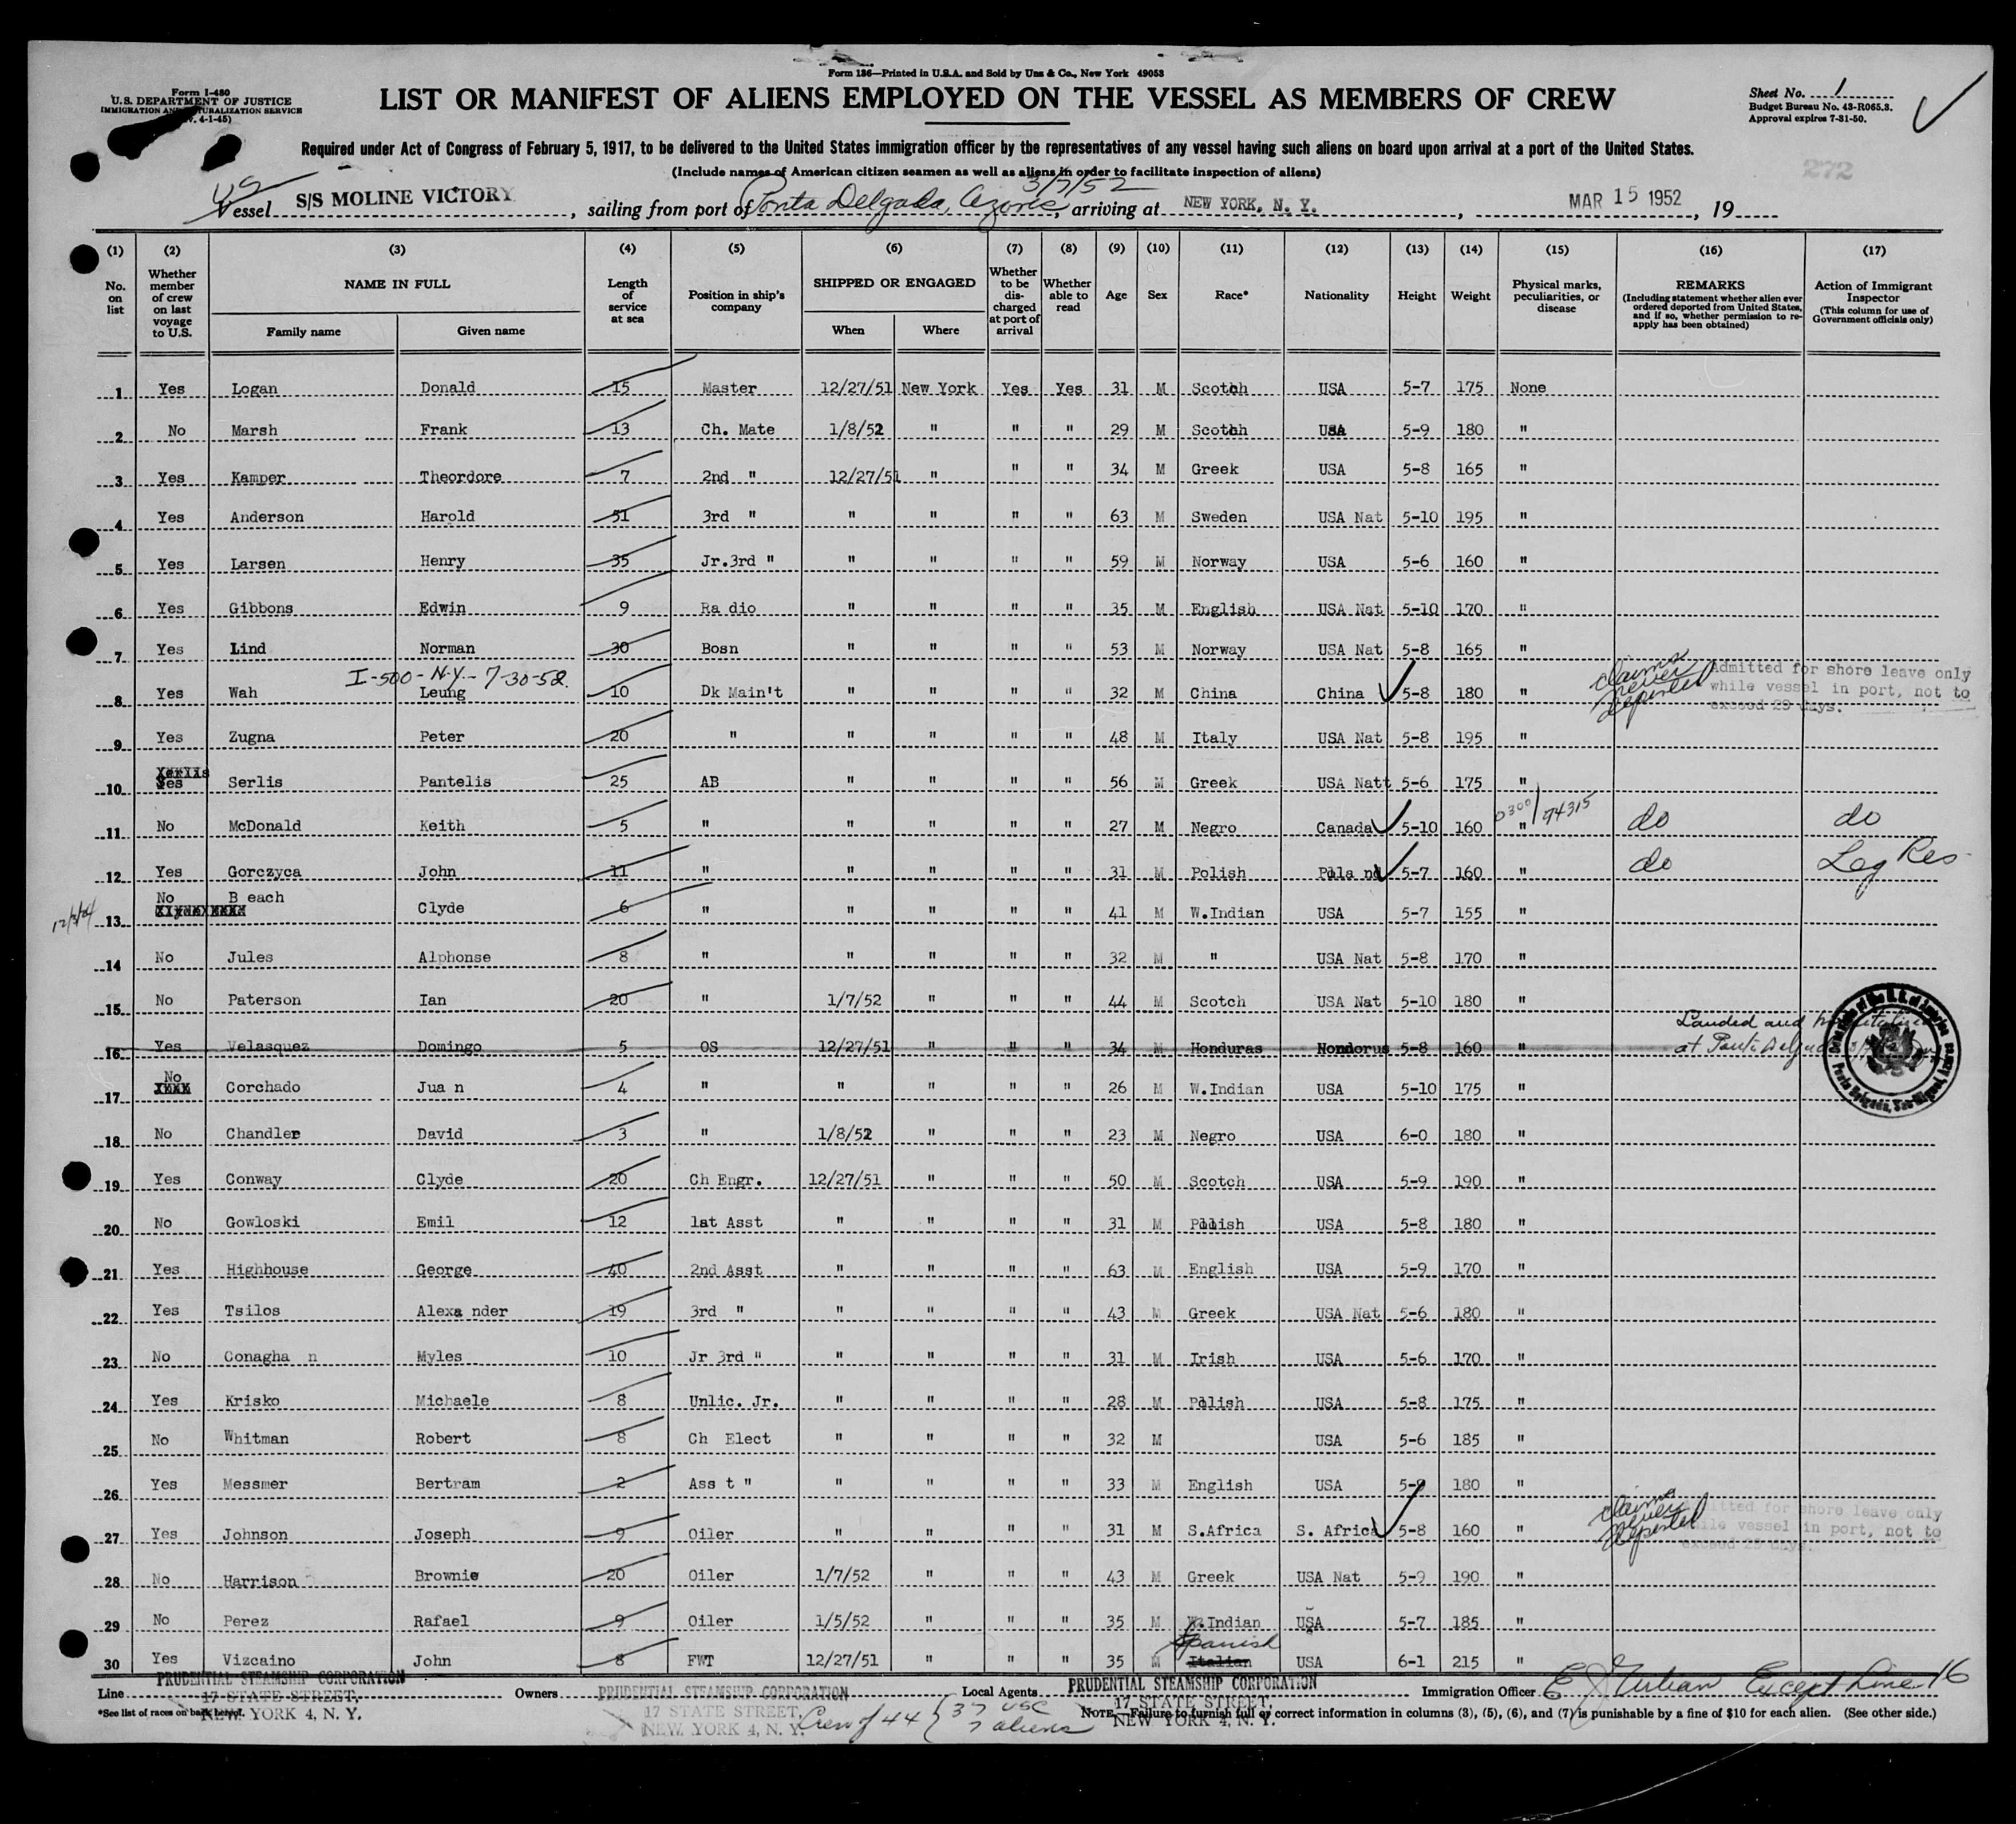 Form 136—Printed in U.S.A. and Sold by Unz & Co., New York 49053
Form I-480
U.S. DEPARTMENT OF JUSTICE
IMMIGRATION AND NATURALIZATION SERVICE
4-1-45)
LIST OR MANIFEST OF ALIENS EMPLOYED ON THE VESSEL AS MEMBERS OF CREW
Sheet No. 1
Budget Bureau No. 43-R065.3.
Approval expires 7-31-50.
Required under Act of Congress of February 5, 1917, to be delivered to the United States immigration officer by the representatives of any vessel having such aliens on board upon arrival at a port of the United States.
(Include names of American citizen seamen as well as aliens in order to facilitate inspection of aliens)
272
US 3/7/52
Vessel S/S MOLINE VICTORY, sailing from port of Ponta Delgada, Azores, arriving at NEW YORK, N. Y., MAR 15 1952, 19
(1) (2) (3) (4) (5) (6) (7) (8) (9) (10) (11) (12) (13) (14) (15) (16) (17)
No. on list
Whether member of crew on last voyage to U.S.
NAME IN FULL
Family name Given name
Length of service at sea
Position in ship's company
SHIPPED OR ENGAGED
When Where
Whether to be discharged at port of arrival
Whether able to read
Age
Sex
Race*
Nationality
Height
Weight
Physical marks, peculiarities, or disease
REMARKS
(Including statement whether alien ever ordered deported from United States, and if so, whether permission to re-apply has been obtained)
Action of Immigrant Inspector
(This column for use of Government officials only)
1 Yes Logan Donald 15 Master 12/27/51 New York Yes Yes 31 M Scotch USA 5-7 175 None
2 No Marsh Frank 13 Ch. Mate 1/8/52 " " " 29 M Scotch USA 5-9 180 "
3 Yes Kamper Theordore 7 2nd " 12/27/51 " " " 34 M Greek USA 5-8 165 "
4 Yes Anderson Harold 51 3rd " " " " " 63 M Sweden USA Nat 5-10 195 "
5 Yes Larsen Henry 35 Jr.3rd " " " " " 59 M Norway USA 5-6 160 "
6 Yes Gibbons Edwin 9 Ra dio " " " " 35 M English USA Nat 5-10 170 "
7 Yes Lind Norman 30 Bosn " " " " 53 M Norway USA Nat 5-8 165 "
I-500-N.Y.- 7-30-52.
8 Yes Wah Leung 10 Dk Main't " " " " 32 M China China 5-8 180 " claims never deported Admitted for shore leave only while vessel in port, not to exceed 29 days.
9 Yes Zugna Peter 20 " " " " " 48 M Italy USA Nat 5-8 195 "
10 Yes Serlis Pantelis 25 AB " " " " 56 M Greek USA Natt 5-6 175 "
0300/74315
11 No McDonald Keith 5 " " " " " 27 M Negro Canada 5-10 160 " do do
12 Yes Gorczyca John 11 " " " " " 31 M Polish Pola nd 5-7 160 " do Leg Res
13 No B each Clyde 6 " " " " " 41 M W.Indian USA 5-7 155 "
14 No Jules Alphonse 8 " " " " " 32 M " USA Nat 5-8 170 "
15 No Paterson Ian 20 " 1/7/52 " " " 44 M Scotch USA Nat 5-10 180 "
16 Yes Velasquez Domingo 5 OS 12/27/51 " " " 34 M Honduras Hondorus 5-8 160 " Landed and at Ponta
17 No Corchado Jua n 4 " " " " " 26 M W.Indian USA 5-10 175 "
18 No Chandler David 3 " 1/8/52 " " " 23 M Negro USA 6-0 180 "
19 Yes Conway Clyde 20 Ch Engr. 12/27/51 " " " 50 M Scotch USA 5-9 190 "
20 No Gowloski Emil 12 1at Asst " " " " 31 M Polish USA 5-8 180 "
21 Yes Highhouse George 40 2nd Asst " " " " 63 M English USA 5-9 170 "
22 Yes Tsilos Alexa nder 19 3rd " " " " " 43 M Greek USA Nat 5-6 180 "
23 No Conagha n Myles 10 Jr 3rd " " " " " 31 M Irish USA 5-6 170 "
24 Yes Krisko Michaele 8 Unlic. Jr. " " " " 28 M Polish USA 5-8 175 "
25 No Whitman Robert 8 Ch Elect " " " " 32 M USA 5-6 185 "
26 Yes Messmer Bertram 2 Ass t " " " " " 33 M English USA 5-9 180 "
27 Yes Johnson Joseph 9 Oiler " " " " 31 M S.Africa S. Africa 5-8 160 " claims never deported Admitted for shore leave only while vessel in port, not to exceed 29 days.
28 No Harrison Brownie 20 Oiler 1/7/52 " " " 43 M Greek USA Nat 5-9 190 "
29 No Perez Rafael 9 Oiler 1/5/52 " " " 35 M W.Indian USA 5-7 185 "
Spanish
30 Yes Vizcaino John 8 FWT 12/27/51 " " " 35 M Italian USA 6-1 215 "
Line PRUDENTIAL STEAMSHIP CORPORATION
17 STATE STREET,
NEW YORK 4, N. Y.
Owners PRUDENTIAL STEAMSHIP CORPORATION
17 STATE STREET,
NEW YORK 4, N. Y.
Local Agents PRUDENTIAL STEAMSHIP CORPORATION
17 STATE STREET,
NEW YORK 4, N. Y.
Immigration Officer Except Line 16
*See list of races on back hereof.
Crew of 44 { 37 USC
7 aliens
NOTE.—Failure to furnish full or correct information in columns (3), (5), (6), and (7) is punishable by a fine of $10 for each alien. (See other side.)